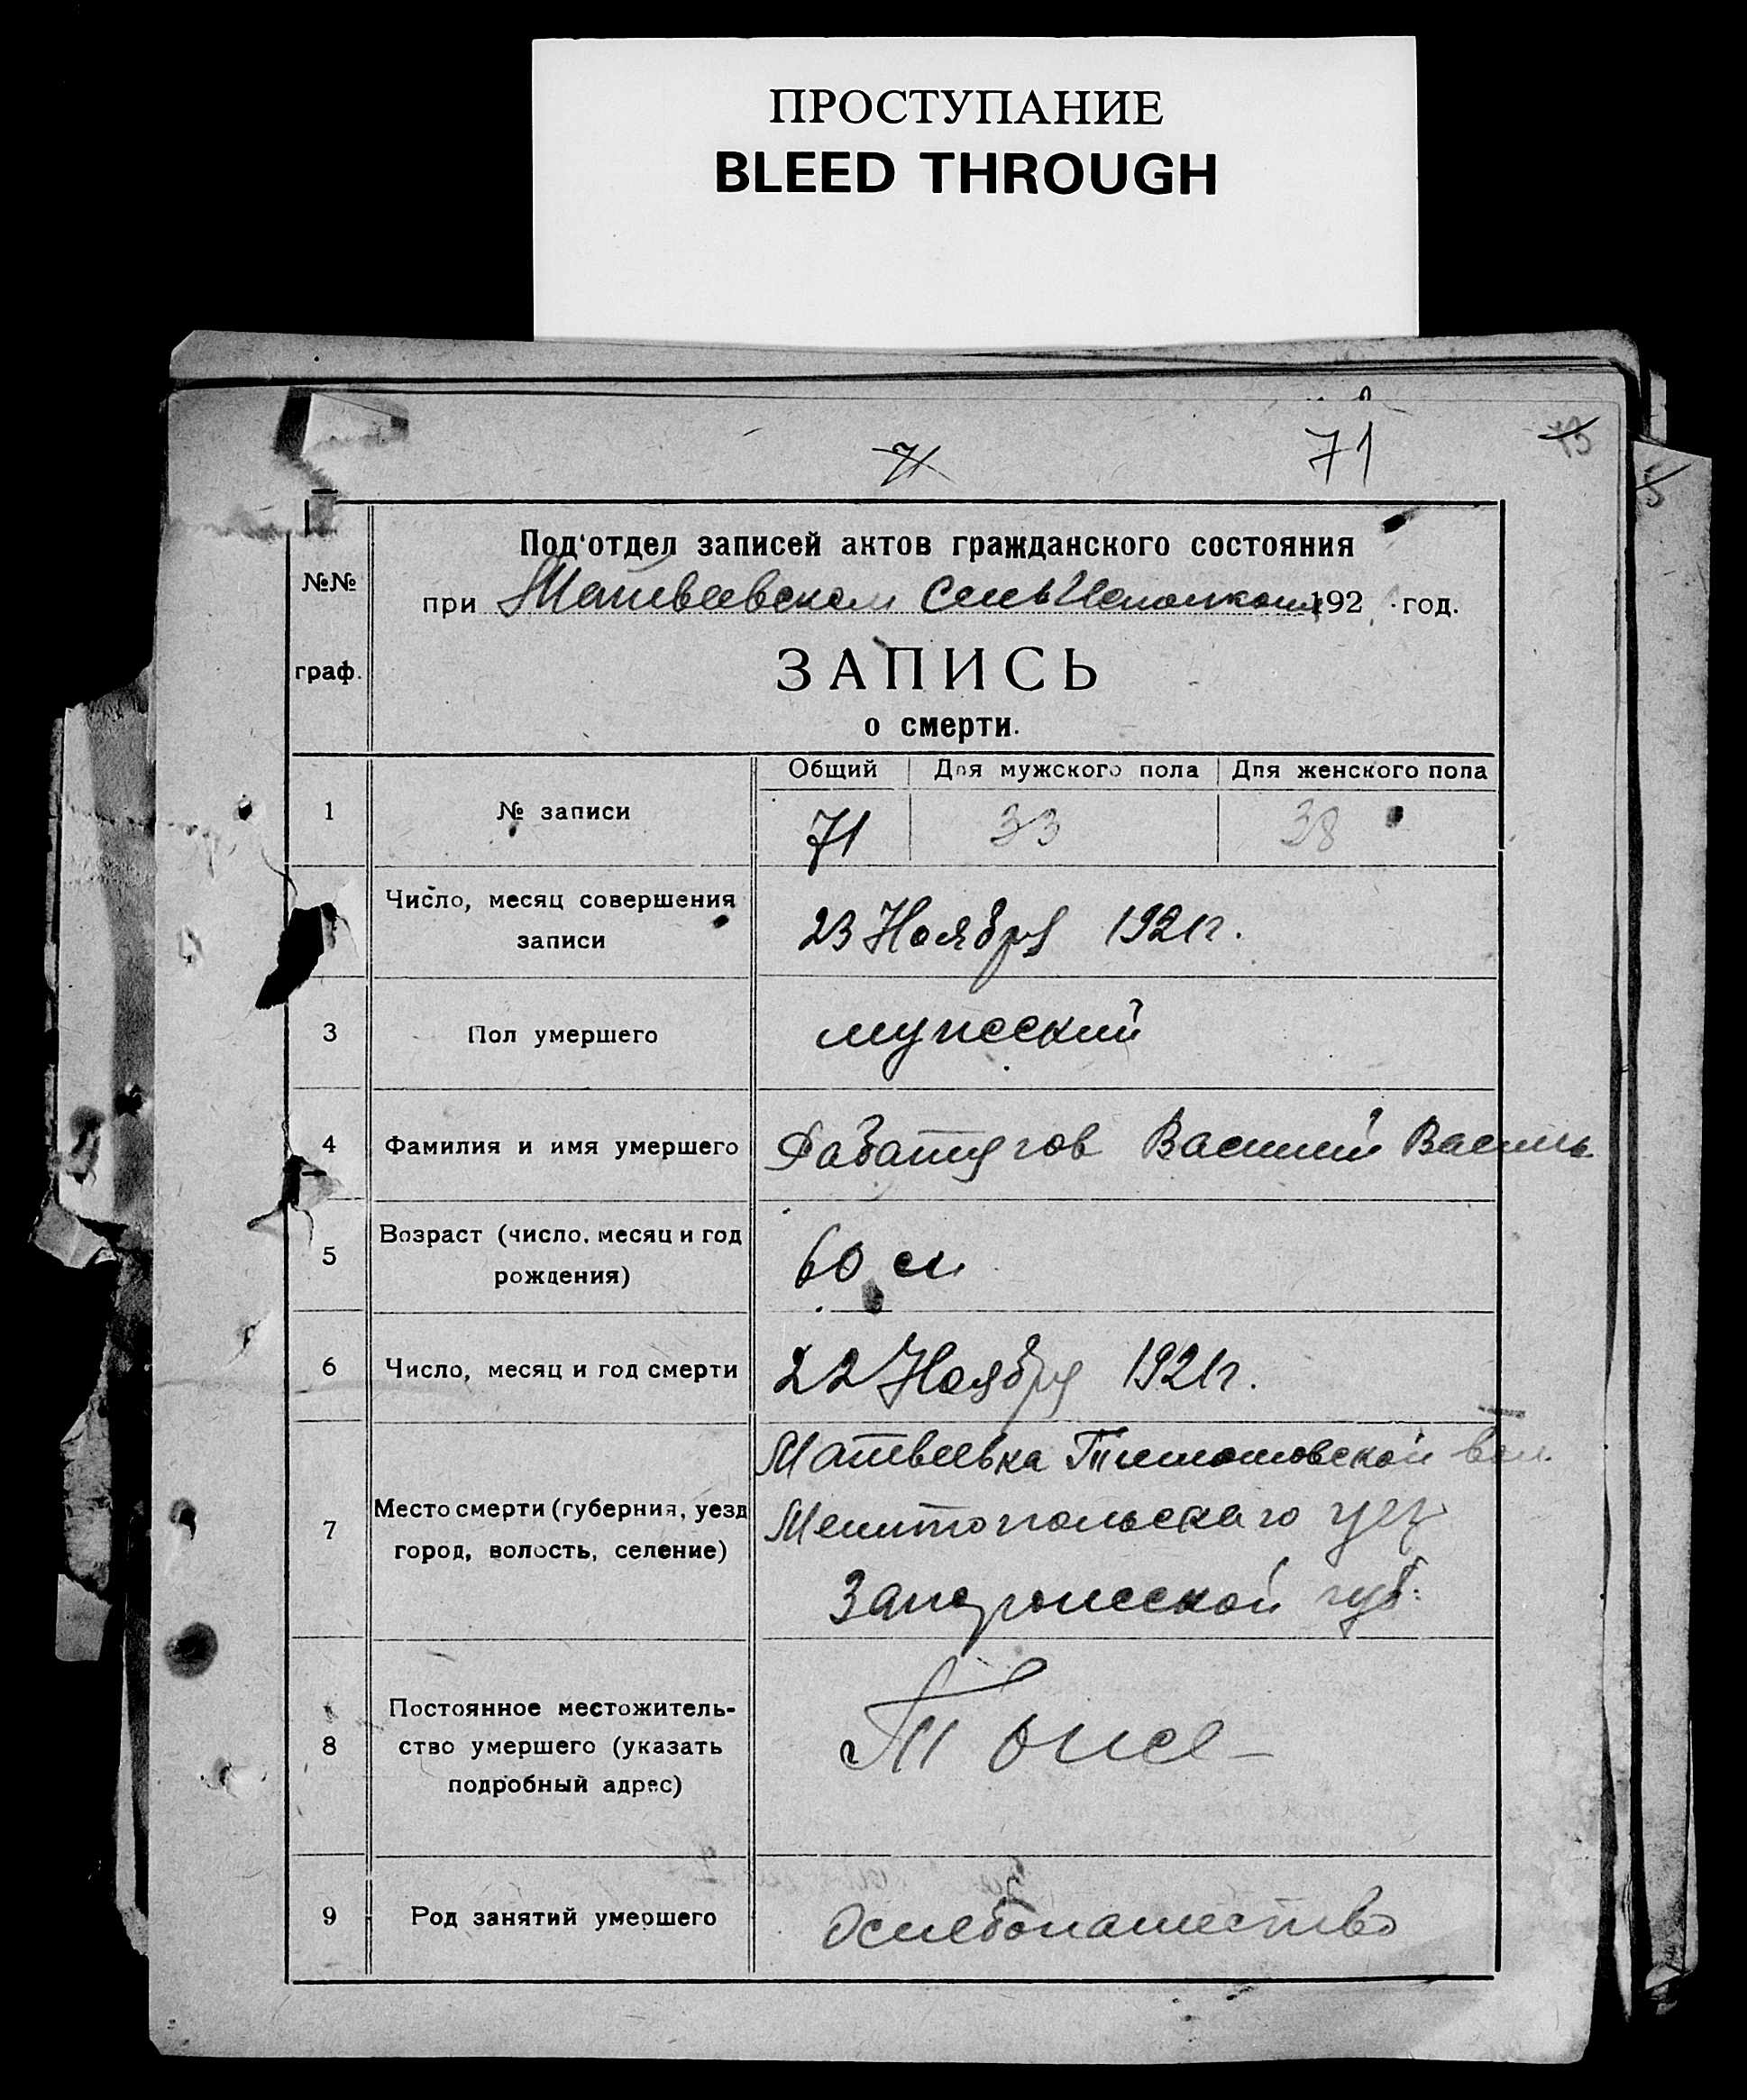 ПРОСТУПАНИЕ
BLEED THROUGH
71 71
№№ граф.
Под'отдел записей актов гражданского состояния
при Матвеевском Сельисполкоме 192 год.
ЗАПИСЬ
о смерти.
Общий Для мужского пола Для женского пола
1 № записи 71 33 38
Число, месяц совершения
записи 23 Ноября 1921г.
3 Пол умершего мужской
4 Фамилия и имя умершего Василий Василь
5 Возраст (число, месяц и год
рождения) 60 л
6 Число, месяц и год смерти 22 Ноября 1921г.
Матвеевка Тимошовской вол.
7 Место смерти (губерния, уезд
город, волость, селение) Мелитопольскаго уез
Запорожской губ.
8 Постоянное местожитель-
ство умершего (указать
подробный адрес) Тоже
9 Род занятий умершего хлебопашество